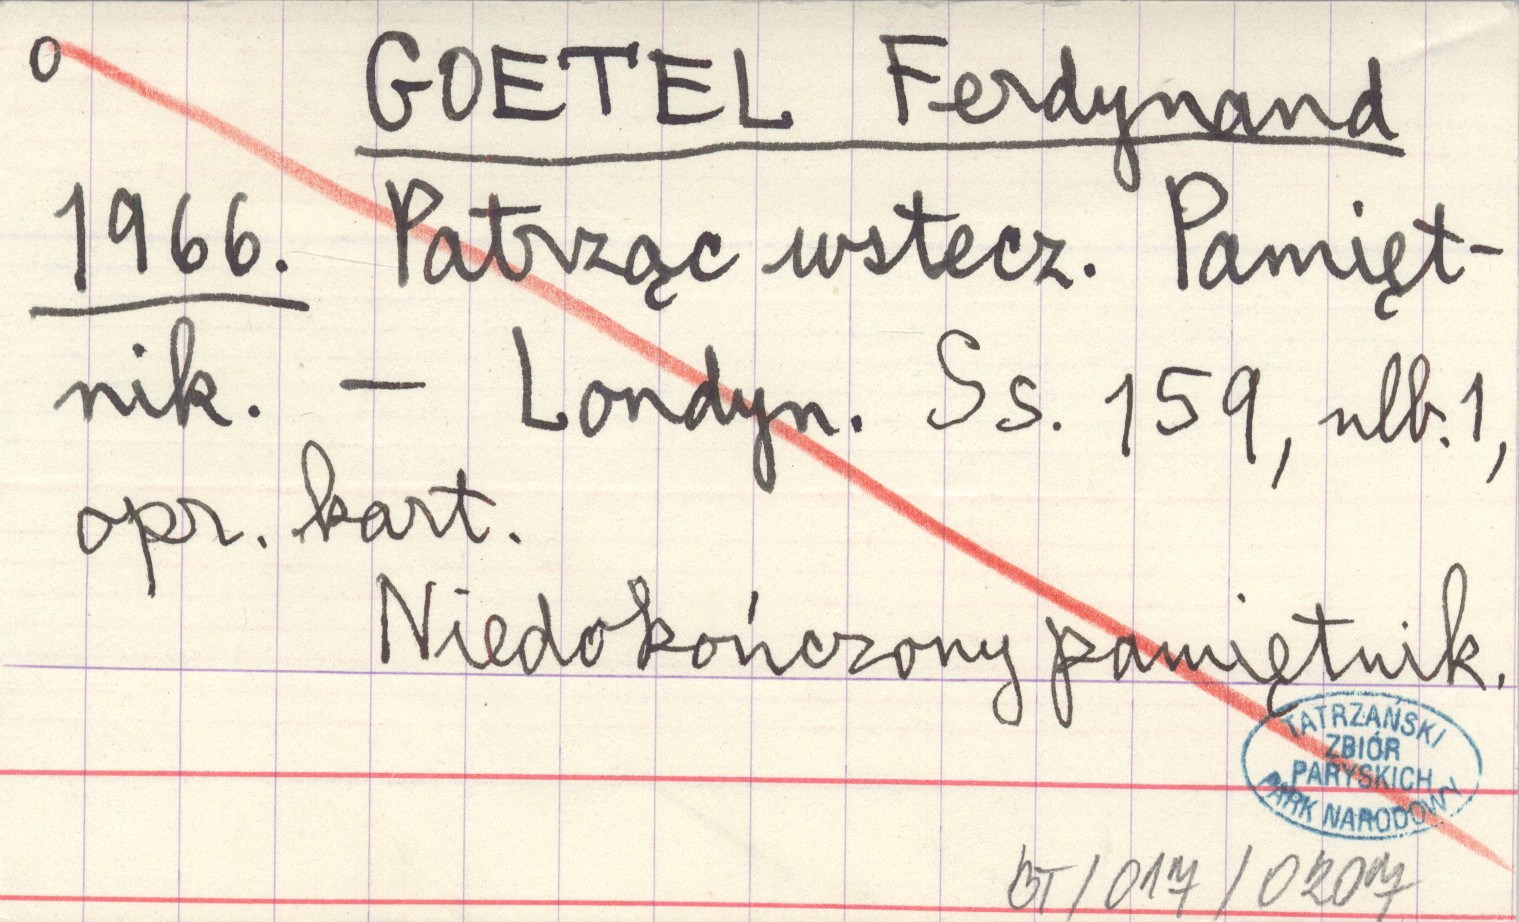 o GOETEL Ferdynand
1966. Patrząc wstecz. Pamięt-
nik. — Londyn. Ss. 159, nlb. 1,
opr. kart.
Niedokończony pamiętnik.
TATRZAŃSKI
ZBIÓR
PARYSKICH
PARK NARODOWY
BT/017/0207